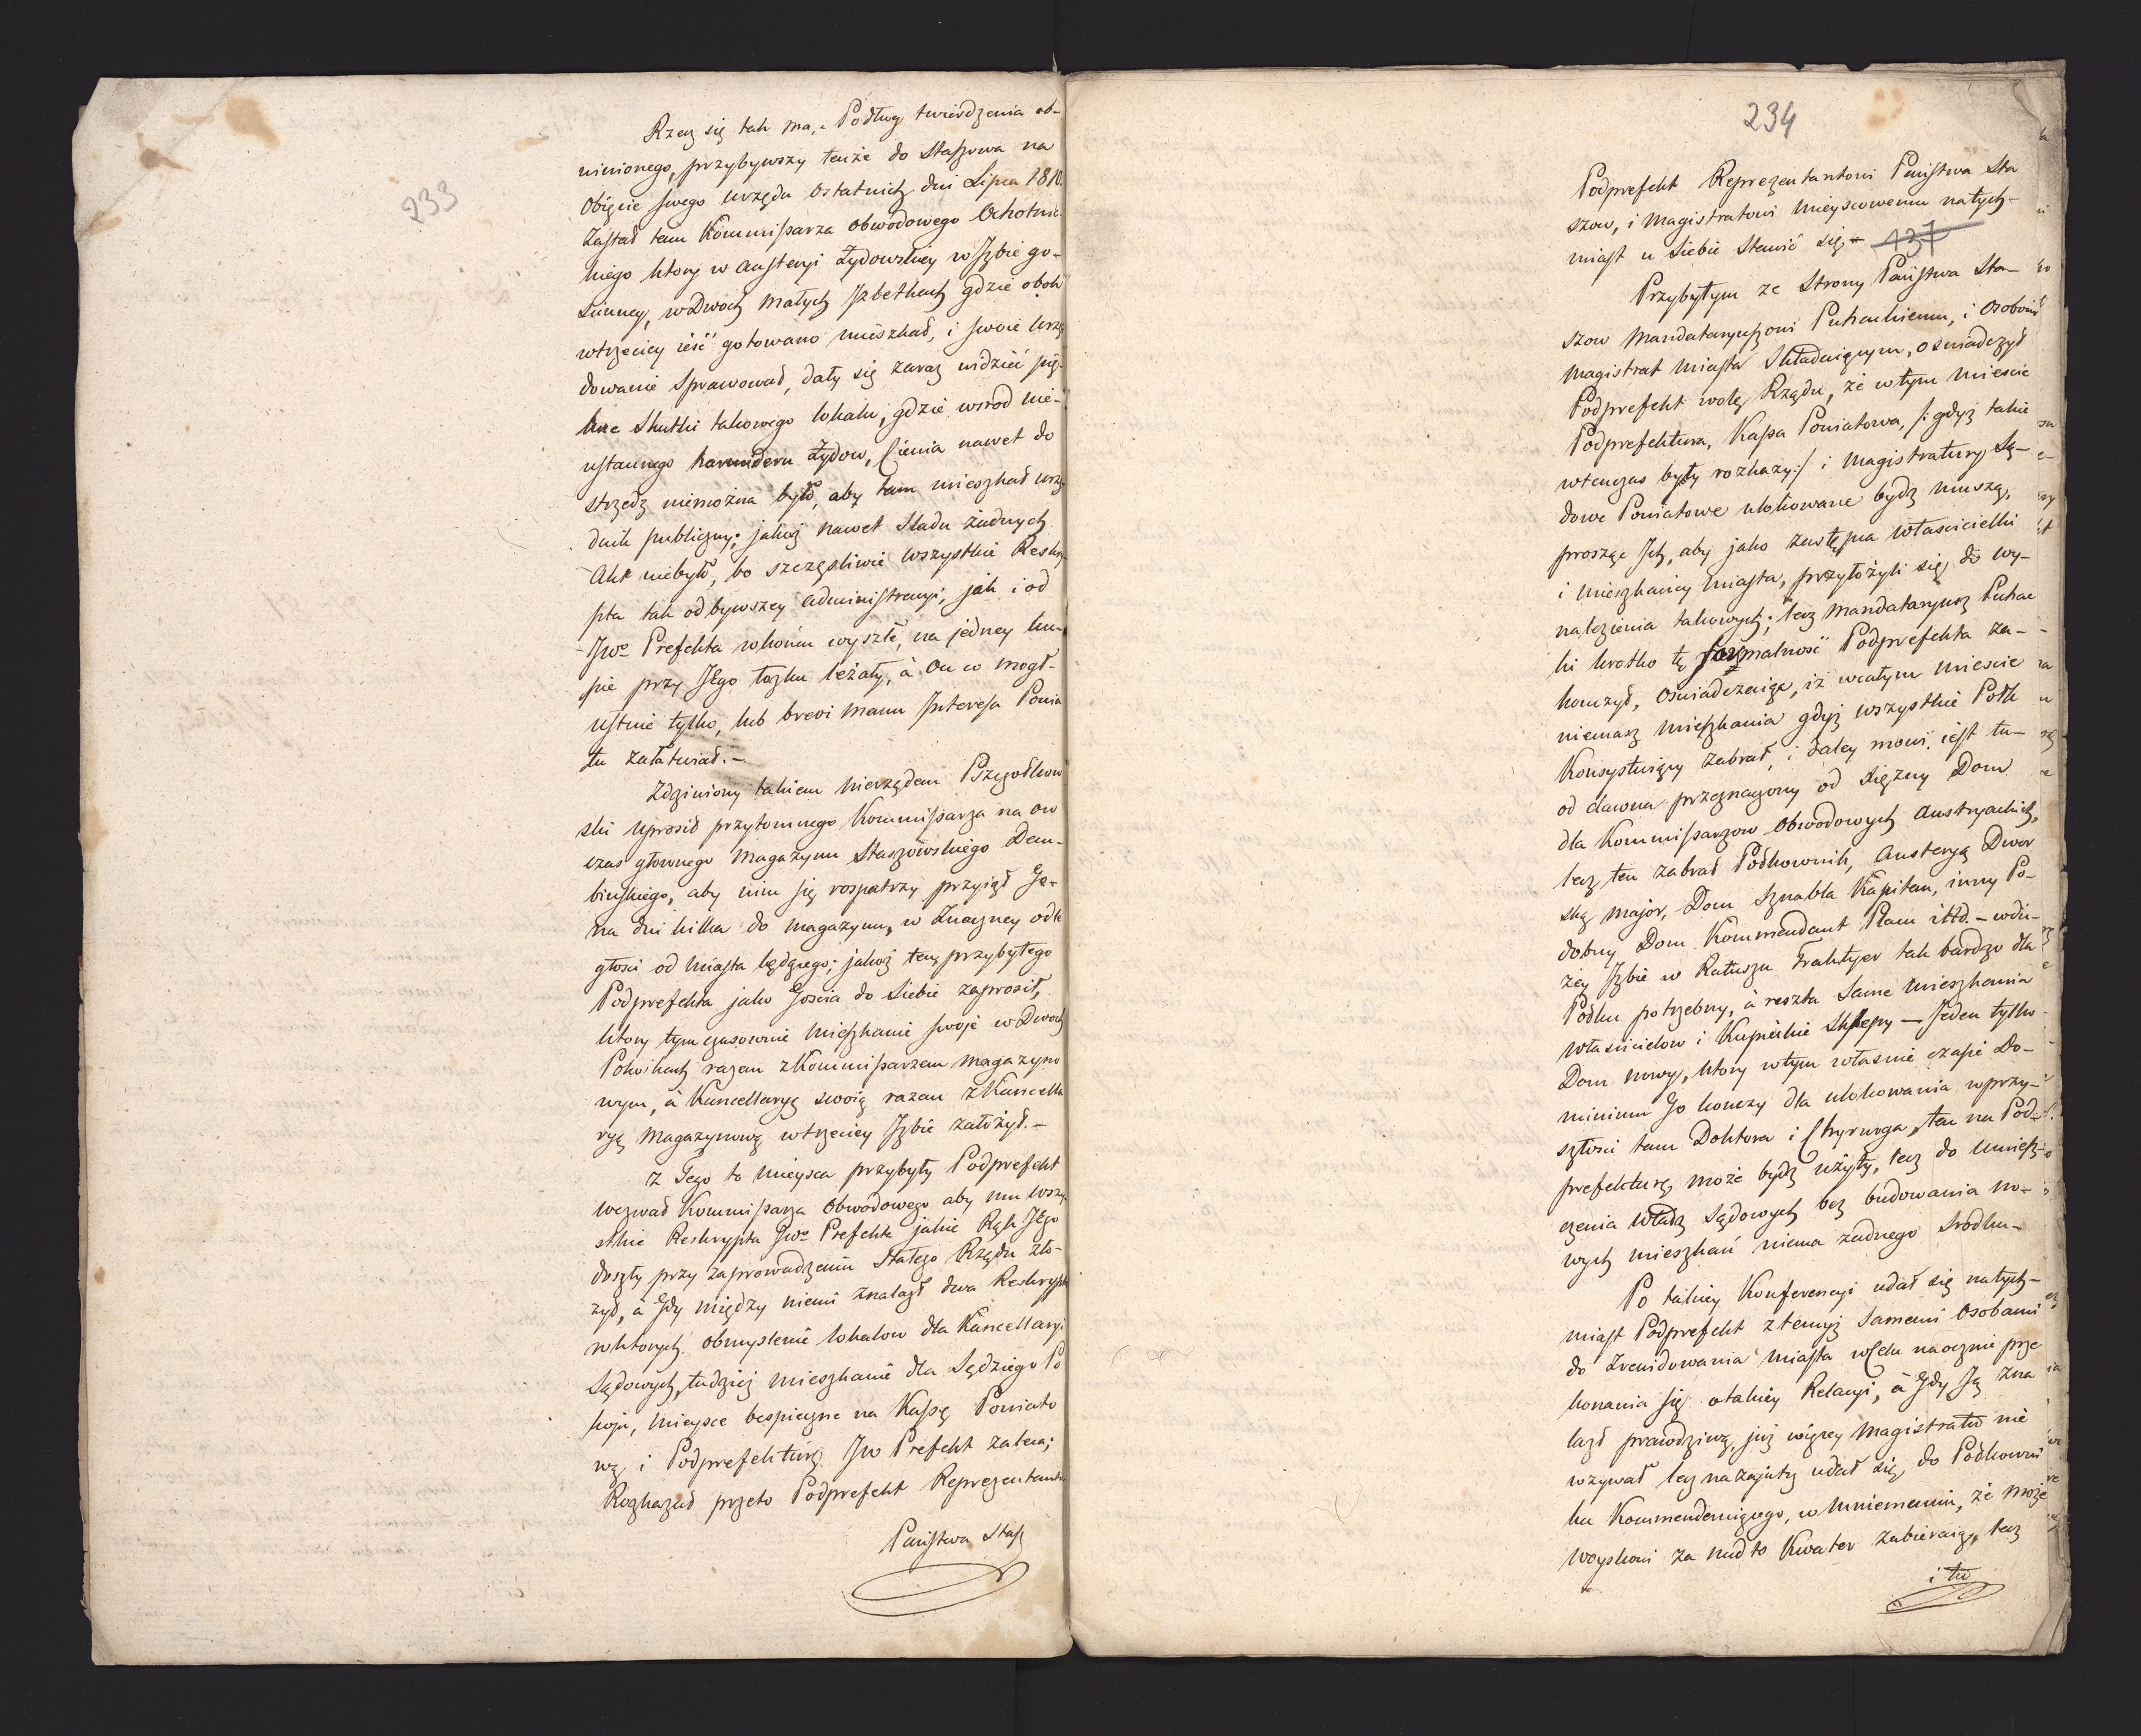 233
Rzecz się tak ma,. Podług twierdzenia ob-
winionego, przybywszy tenże do Staszowa na
Obięcie swego urzędu ostatnich dni Lipca 1810.
Zastał tam Kommissarza obwodowego Ochotnic-
kiego ktory w Austeryi Żydowskiey w Izbie go-
ścinney, w Dwoch małych Izbetkach gdzie obok
w trzeciey ieść gotowano mieszkał, i swoie Urzę
dowanie Sprawował, dały się zaraz widzieć pię-
kne Skutki takowego lokalu, gdzie wsrod nie-
ustannego harmideru Żydow, Sienia nawet do
strzedz niemożna było, aby tam mieszkał urzę
dnik publiczny; jakoż nawet Sladu żadnych
Akt niebyło, bo szczęśliwie wszystkie Reskry
pta tak od bywszey administracyi, jak i od
JWo Prefekta w końcu wyszłe, na jedney ku-
pie przy Jego łożku leżały, à On co mogł-
ustnie tylko, lub brevi manu Interesa Powia
tu załatwiał.-
Zdziwiony takiem nierządem Pszczołkow
ski uprosił przytomnego Kommissarza na on
czas głownego Magazynu Staszowskiego Dem-
bińskiego, aby nim się rospatrzy przyiął Go-
na dni kilka do magazynu, w Znaczney odle
głości od Miasta będącego; jakoż ten, przybyłego
Podprefekta jako Gościa do Siebie zaprosił,
ktory tymczasownie Mieszkanie swoje w Dwoch
Pokoikach razem z Kommissarzem Magazyno
wym, à Kancellaryę swoią razem z Kancella
ryą Magazynową w trzeciey Izbie założył.-
Z Tego to mieysca przybyły Podprefekt
wezwał Kommissarza Obwodowego aby mu wszy
stkie Reskrypta JWo Prefekta jakie Rąk Jego
doszły przy zaprowadzeniu Stałego Rządu zło-
żył, à Gdy między niemi znalazł dwa Reskrypta
w ktorych obmyślenie lokalow dla Kancellaryi
Sądowych, tudzież mieszkanie dla Sędziego Po
koju, Mieysce bespieczne na Kassę Powiato
wą i Podprefekturę JW Prefekt zaleca;
Rozkazał przeto Podprefekt Reprezentanto
Państwa Stasz
234
Podprefekt Reprezentantowi Państwa Sta
szow, i Magistratowi Mieyscowemu natych-
miast u Siebie Stawić się
137
Przybyłym ze Strony Państwa Sta-
szow Mandataryuszowi Puchackiemu, i Osobom
Magistrat Miasta Składaiącym, oswiadczył
Podprefekt wolę Rządu, że w tym Miescie
Podprefektura, Kassa Powiatowa, /: gdyż takie
wtenczas były rozkazy:/ i Magistratury Są-
dowe Powiatowe ulokowane bydź muszą,
prosząc Ich, aby jako zastępca właścicielki
i Mieszkańcy Miasta, przyłożyli się do wy-
nalezienia takowych; lecz Mandataryusz Puchac
ki krotko tę formalność Podprefekta za-
kończył, Oswiadczaiąc, iż w całym Miescie
niemasz Mieszkania gdyż wszystkie Połk
Konsystuiący zabrał, i daley mowi, iest tu-
od dawna przeznaczony od Xiężny Dom
dla Kommissarzow Obwodowych Austryackich,
lecz ten zabrał Połkownik, Austeryą Dwor
ską Major, Dom Sznabla Kapitan, inny Po-
dobny Dom Kommendant Placu ittd. - w du-
żey Izbie w Ratuszu Traktyer tak bardzo dla
Połku potrzebny, à reszta Same Mieszkania
Właścicielow i Kupieckie Sklepy - Jeden tylko
Dom nowy, ktory w tym własnie czasie Do-
minium Go kończy dla ulokowania w przy-
szłości tam Doktora i Chyrurga, ten na Pod-
prefekturę może bydź użyty, lecz do Umiesz-
czenia Władz Sądowych bez budowania no-
wych mieszkań niema żadnego Srodku-
Po takiey Konferencyi udał się natych-
miast Podprefekt z temiż Samemi Osobami
do Zrewidowania Miasta w Celu naocznie prze
konania się o takiey Relacyi, à Gdy Ją zna
lazł prawdziwą, już więcey Magistratu nie
wzywał lecz nazajutrz udał się, do Połkowni
ka Kommenderuiącego, w Mniemaniu, że może
Woyskowi za nadto Kwater zabieraią, lecz
i tu